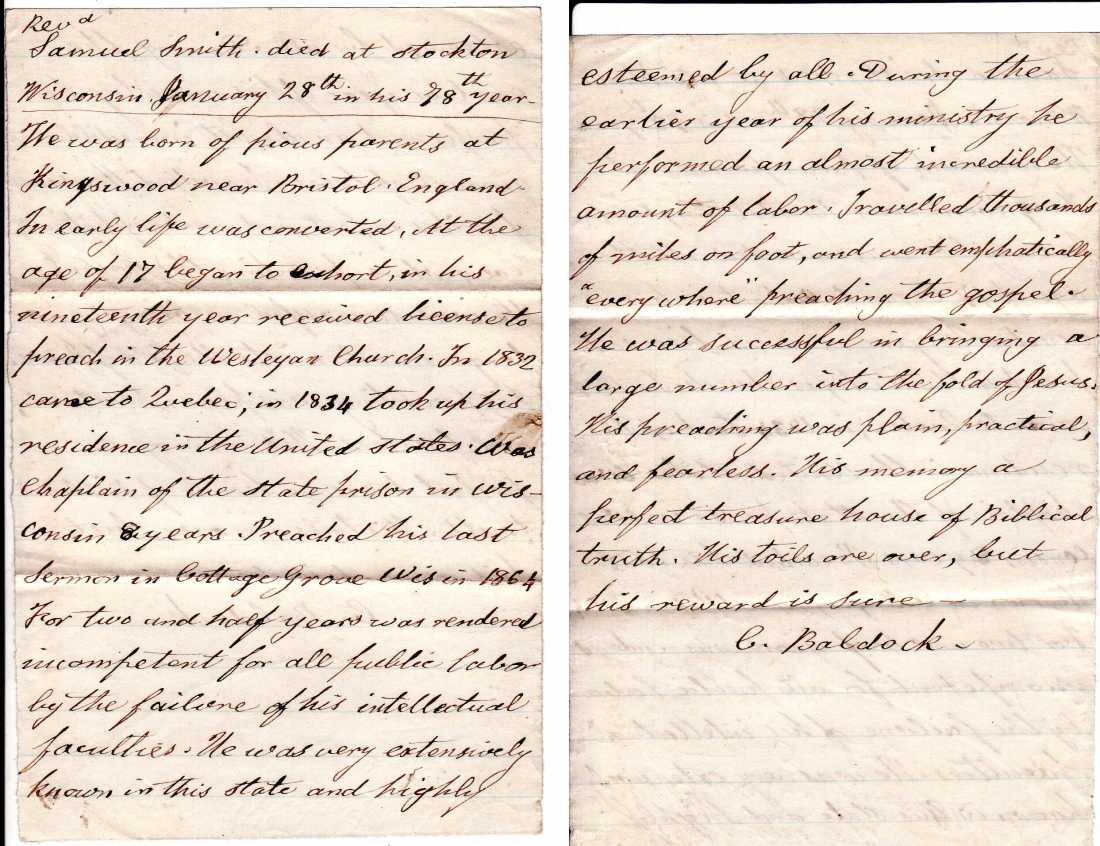 Revd
Samuel Smith. died at Stockton
Wisconsin. January 28th in his 78th year.
He was born of pious parents at
Kingswood near Bristol. England
In early life was converted, At the
age of 17 began to exhort, in his
nineteenth year received license to
preach in the Wesleyan Church. In 1832
came to Quebec, in 1834 took up his
residence in the United States. Was
Chaplain of the state prison in Wis-
consin 8 years. Preached his last
Sermon in Cottage Grove Wis in 1864
For two and half years was rendered
incompetent for all public labor
by the failure of his intellectual
faculties. He was very extensively
known in this state and highly
esteemed by all. During the
earlier year of his ministry he
performed an almost incredible
amount of labor. Travelled thousands
of miles on foot, and went emphatically
"every where" preaching the gospel.
He was successful in bringing a
large number into the fold of Jesus.
His preaching was plain, practical,
and fearless. His memory a
perfect treasure house of Biblical
truth. His toils are over, but
his reward is sure—
C. Baldock.